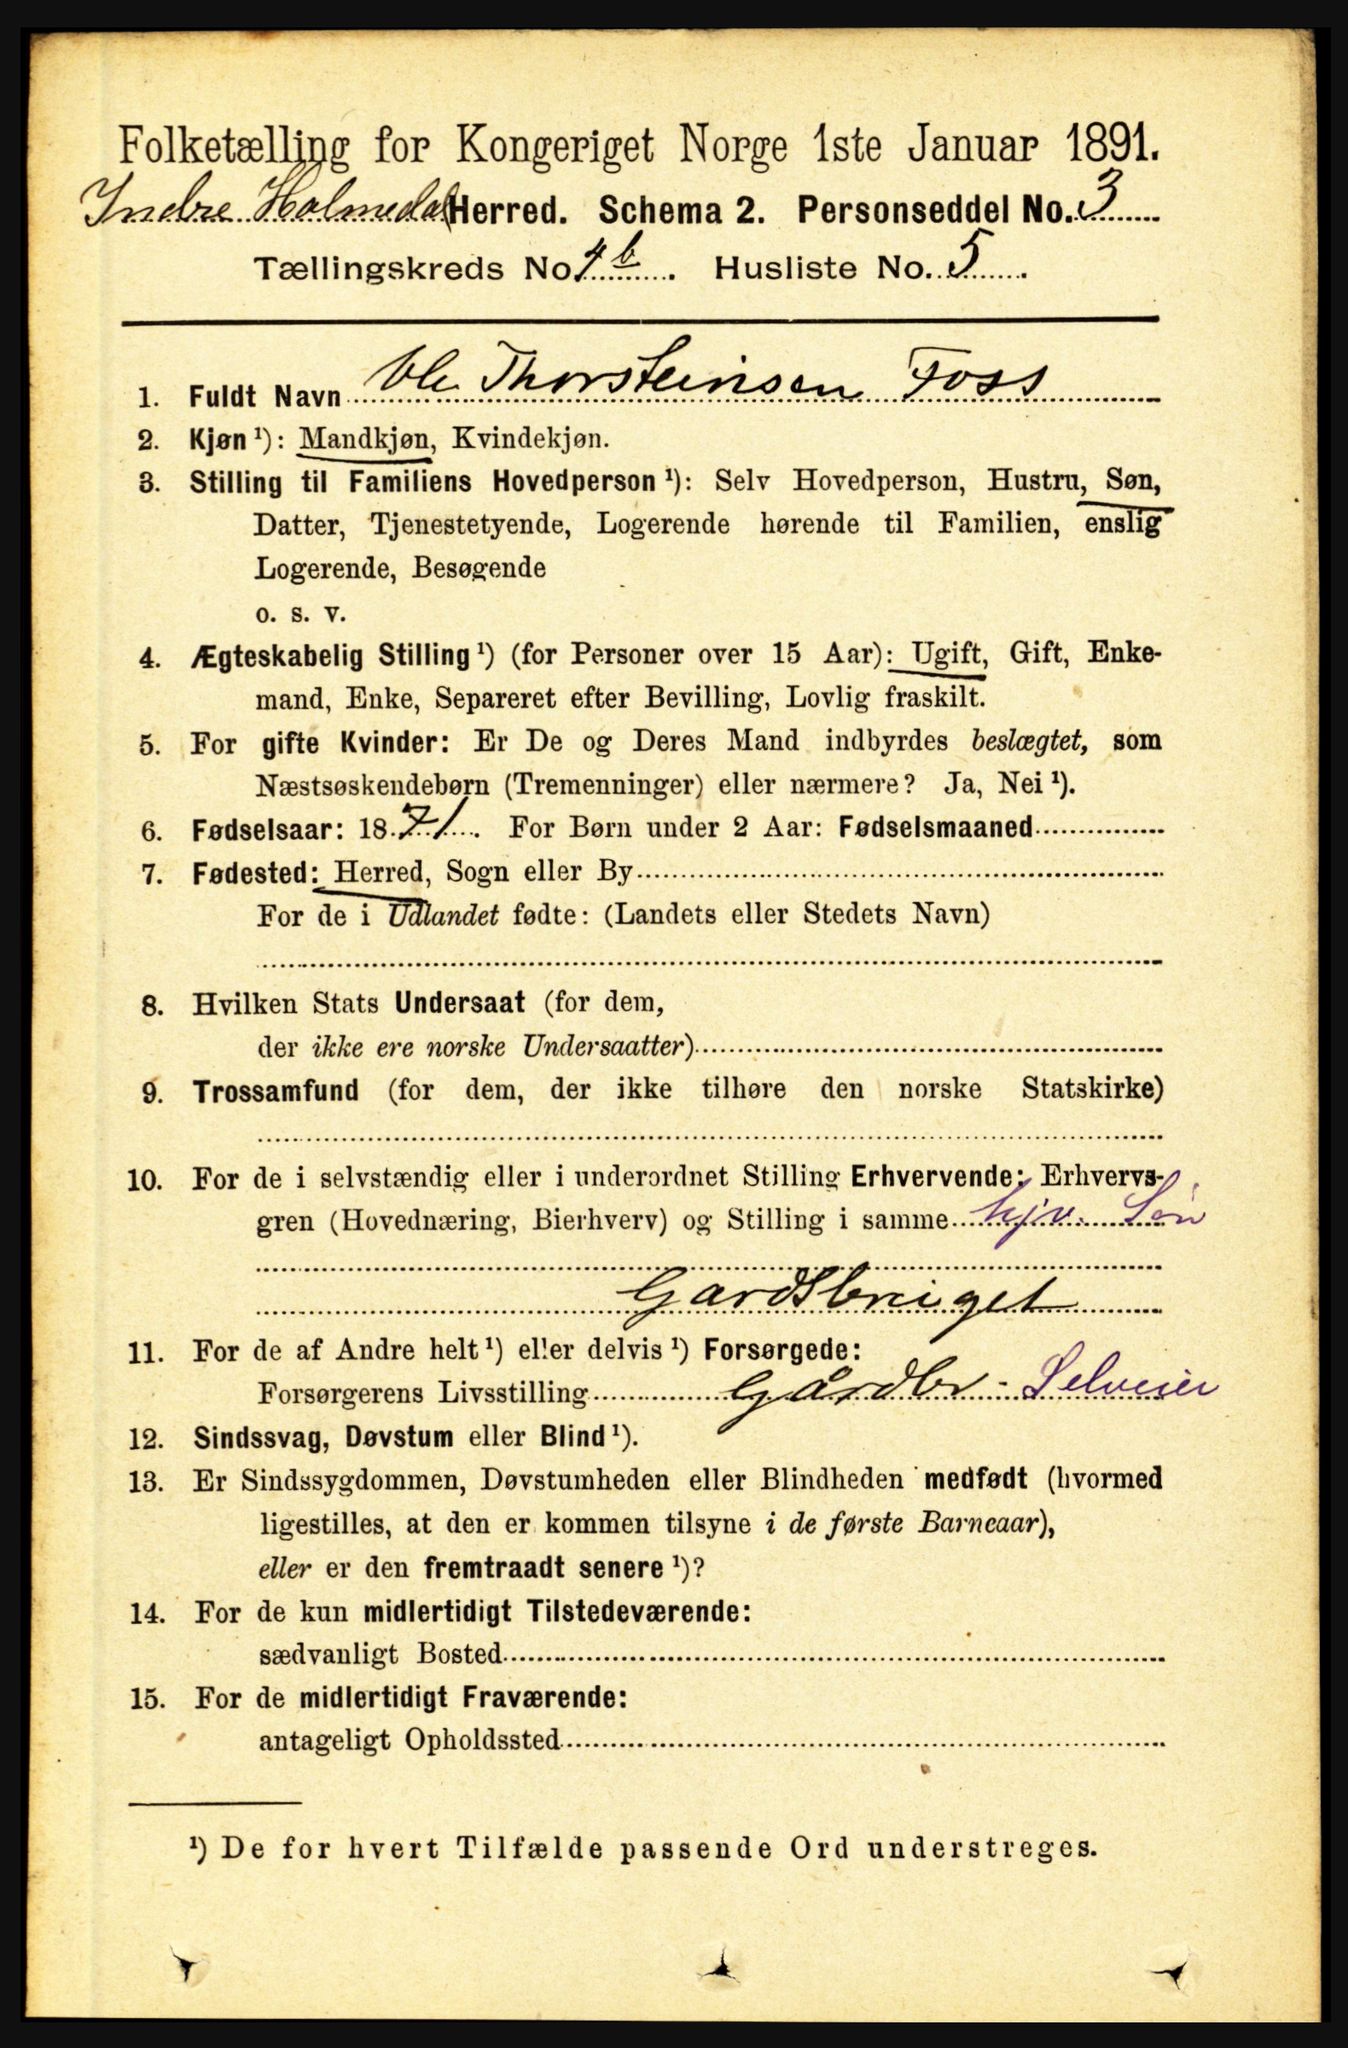 Folketælling for Kongeriget Norge 1ste Januar 1891.
Indre Holmedal Herred. Schema 2. Personseddel No. 3
Tællingskreds No. 4b. Husliste No. 5.
1. Fuldt Navn Ole Thorsteinsen Foss
2. Kjøn ¹): Mandkjøn, Kvindekjøn.
3. Stilling til Familiens Hovedperson ¹): Selv Hovedperson, Hustru, Søn,
Datter, Tjenestetyende, Logerende hørende til Familien, enslig
Logerende, Besøgende
o. s. v.
4. Ægteskabelig Stilling ¹) (for Personer over 15 Aar): Ugift, Gift, Enke-
mand, Enke, Separeret efter Bevilling, Lovlig fraskilt.
5. For gifte Kvinder: Er De og Deres Mand indbyrdes beslægtet, som
Næstsøskendebørn (Tremenninger) eller nærmere? Ja, Nei ¹).
6. Fødselsaar: 1871. For Børn under 2 Aar: Fødselsmaaned
7. Fødested: Herred, Sogn eller By
For de i Udlandet fødte: (Landets eller Stedets Navn)
8. Hvilken Stats Undersaat (for dem,
der ikke ere norske Undersaatter)
9. Trossamfund (for dem, der ikke tilhøre den norske Statskirke)
10. For de i selvstændig eller i underordnet Stilling Erhvervende: Erhvervs-
gren (Hovednæring, Bierhverv) og Stilling i samme hjv. Søn
Gardsbruget
11. For de af Andre helt ¹) eller delvis ¹) Forsørgede:
Forsørgerens Livsstilling Gårdbr - Selveier
12. Sindssvag, Døvstum eller Blind ¹).
13. Er Sindssygdommen, Døvstumheden eller Blindheden medfødt (hvormed
ligestilles, at den er kommen tilsyne i de første Barneaar),
eller er den fremtraadt senere ¹)?
14. For de kun midlertidigt Tilstedeværende:
sædvanligt Bosted
15. For de midlertidigt Fraværende:
antageligt Opholdssted
¹) De for hvert Tilfælde passende Ord understreges.